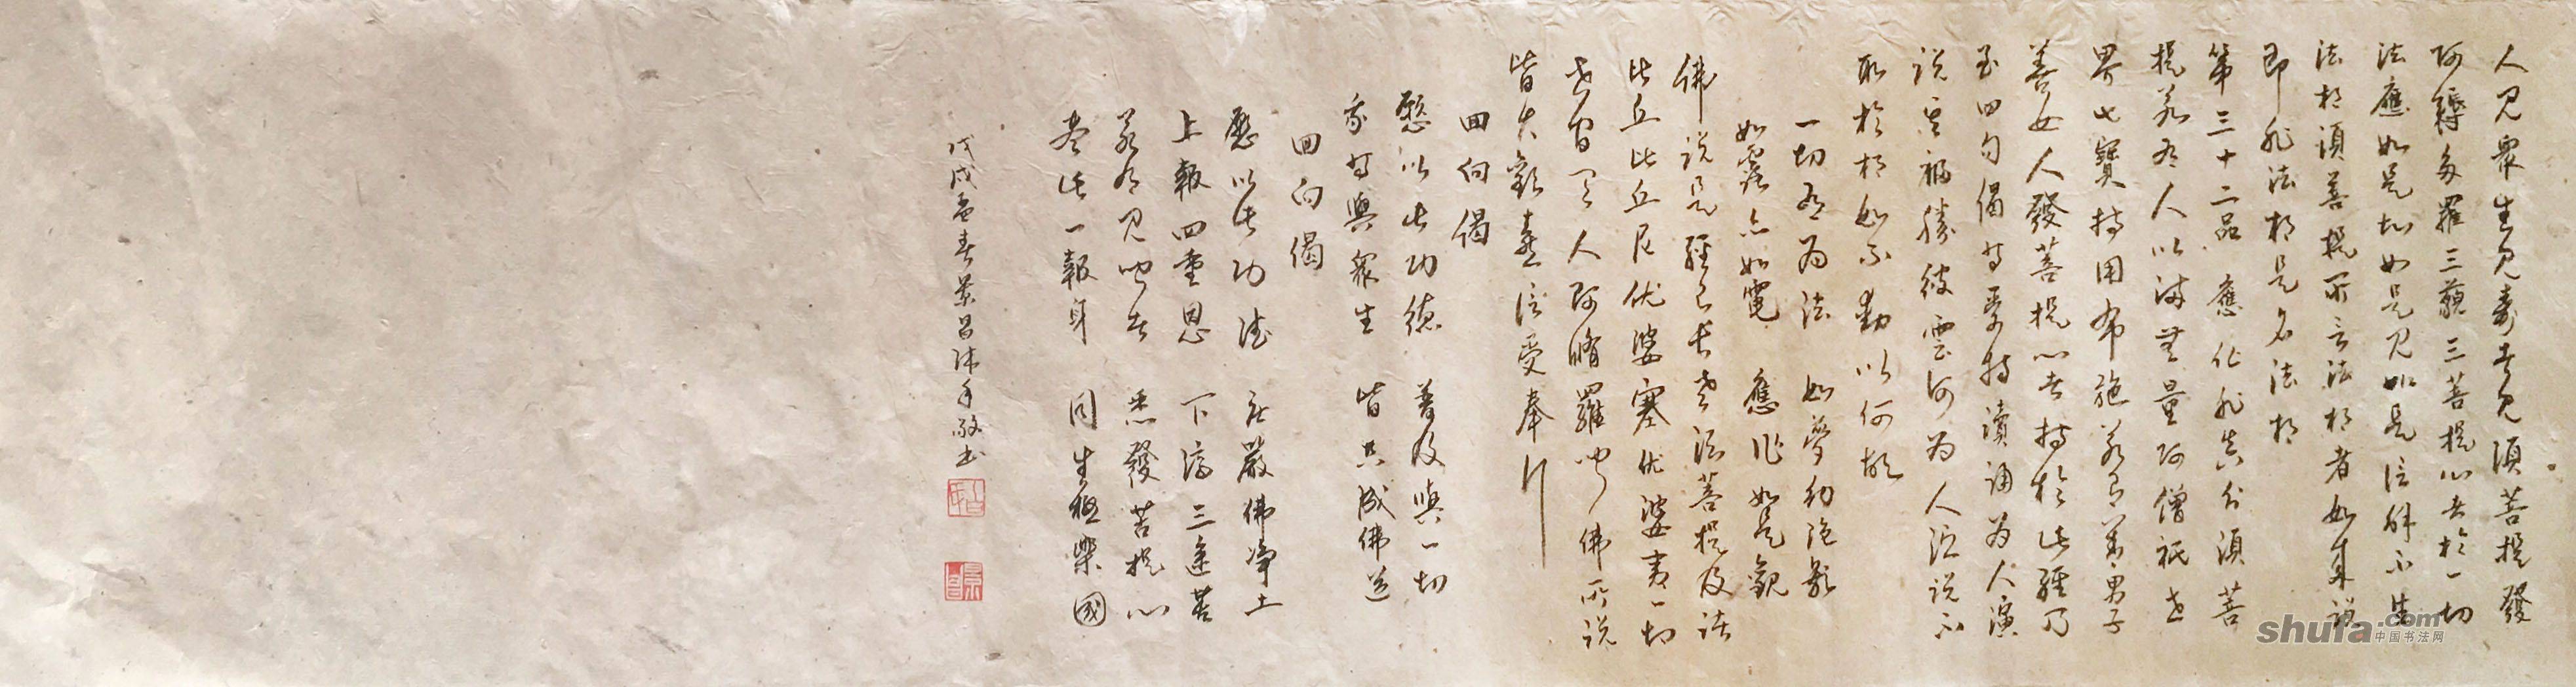 人見眾生見壽者見須菩提發
阿耨多羅三藐三菩提心者於一切
法應如是知如是見如是信解不生
法相須菩提所言法相者如來說
即非法相是名法相
第三十二品 應化非真分須菩
提若有人以滿無量阿僧祇世
界七寶持用布施若有善男子
善女人發菩提心者持於此經乃
至四句偈等受持讀誦為人演
說其福勝彼雲何為人演說不
取於相如如不動以何故
一切有為法 如夢幻泡影
如露亦如電 應作如是觀
佛說是經已長老須菩提及諸
比丘比丘尼優婆塞優婆夷一切
世間天人阿脩羅聞佛所說
皆大歡喜信受奉行
回向偈
願以此功德 普及與一切
我等與眾生 皆共成佛道
回向偈
願以此功德 莊嚴佛淨土
上報四重恩 下濟三塗苦
若有見聞者 悉發菩提心
盡此一報身 同生極樂國
戊戌孟春景昌沐手敬书
shufa.com
中国书法网